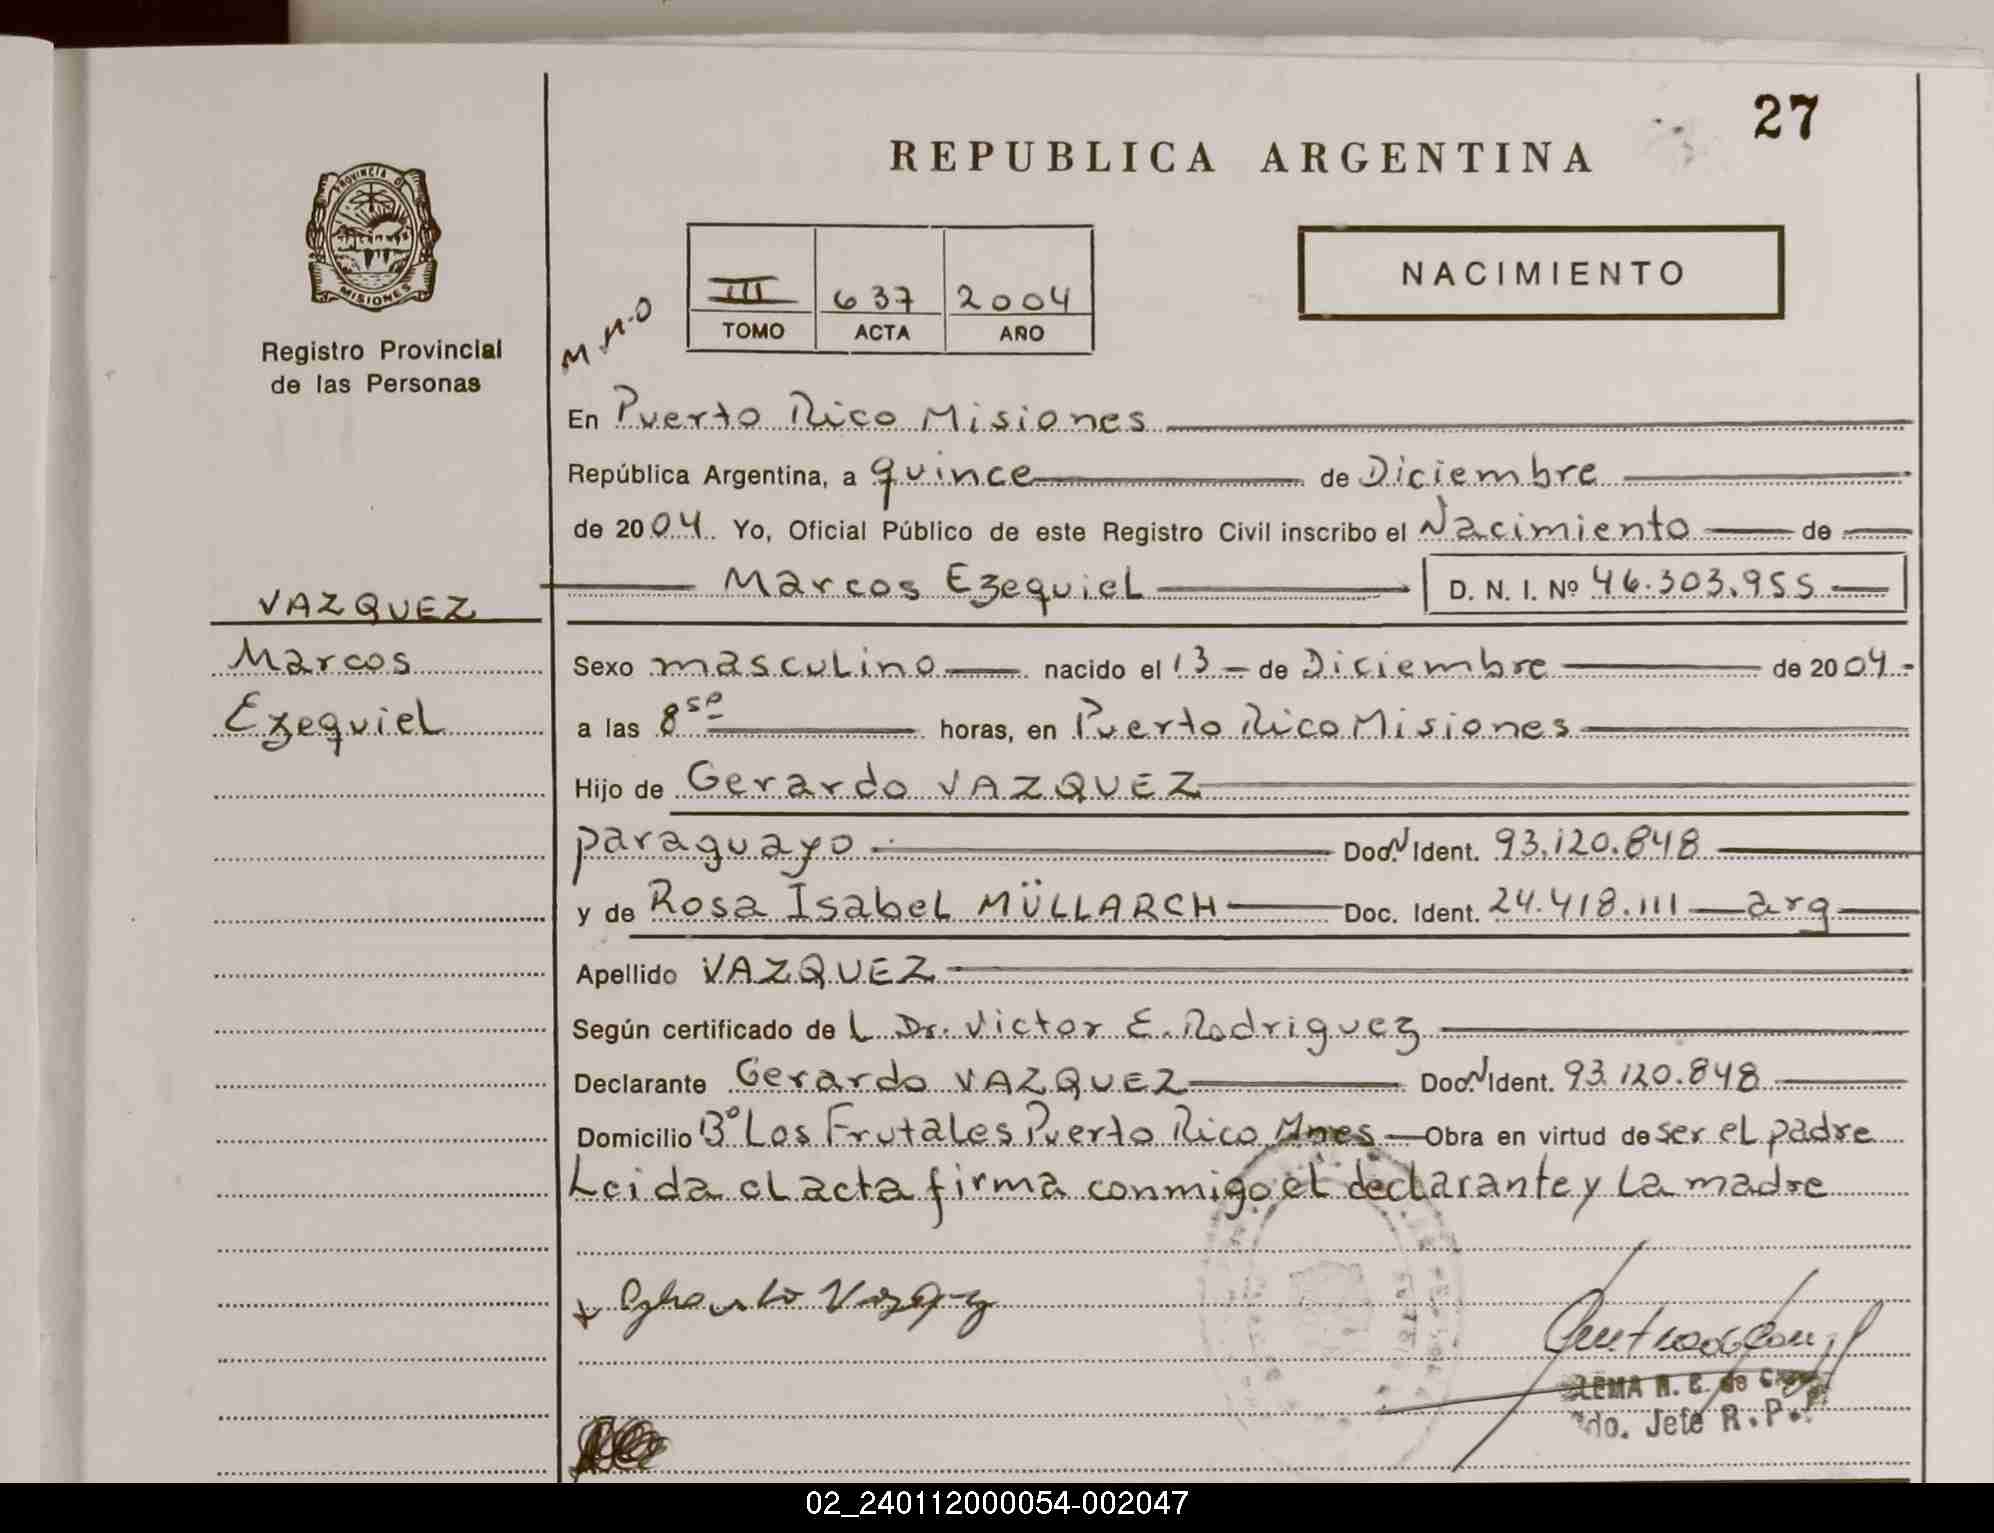 27
REPUBLICA ARGENTINA
PROVINCIA D
MISIONES
Registro Provincial
de las Personas
III 637 2004
TOMO ACTA AÑO
NACIMIENTO
En Puerto Rico Misiones
República Argentina, a quince de Diciembre
de 2004. Yo, Oficial Público de este Registro Civil inscribo el Nacimiento de
Marcos Ezequiel D. N. I. Nº 46.303.955
VAZQUEZ
Marcos
Ezequiel
Sexo masculino nacido el 13 de Diciembre de 2004
a las 8 horas, en Puerto Rico Misiones
Hijo de Gerardo VAZQUEZ
paraguayo Doc. N Ident. 93.120.848
y de Rosa Isabel MÜLLARCH Doc. Ident. 24.418.111 arg
Apellido VAZQUEZ
Según certificado de L Dr. Victor E. Rodriguez
Declarante Gerardo VAZQUEZ Doc. N Ident. 93.120.848
Domicilio Bº Los Frutales Puerto Rico Mnes Obra en virtud de ser el padre
Leida el acta firma conmigo el declarante y la madre
LEMA R. E. de
do. Jefe R.P.
02_240112000054-002047